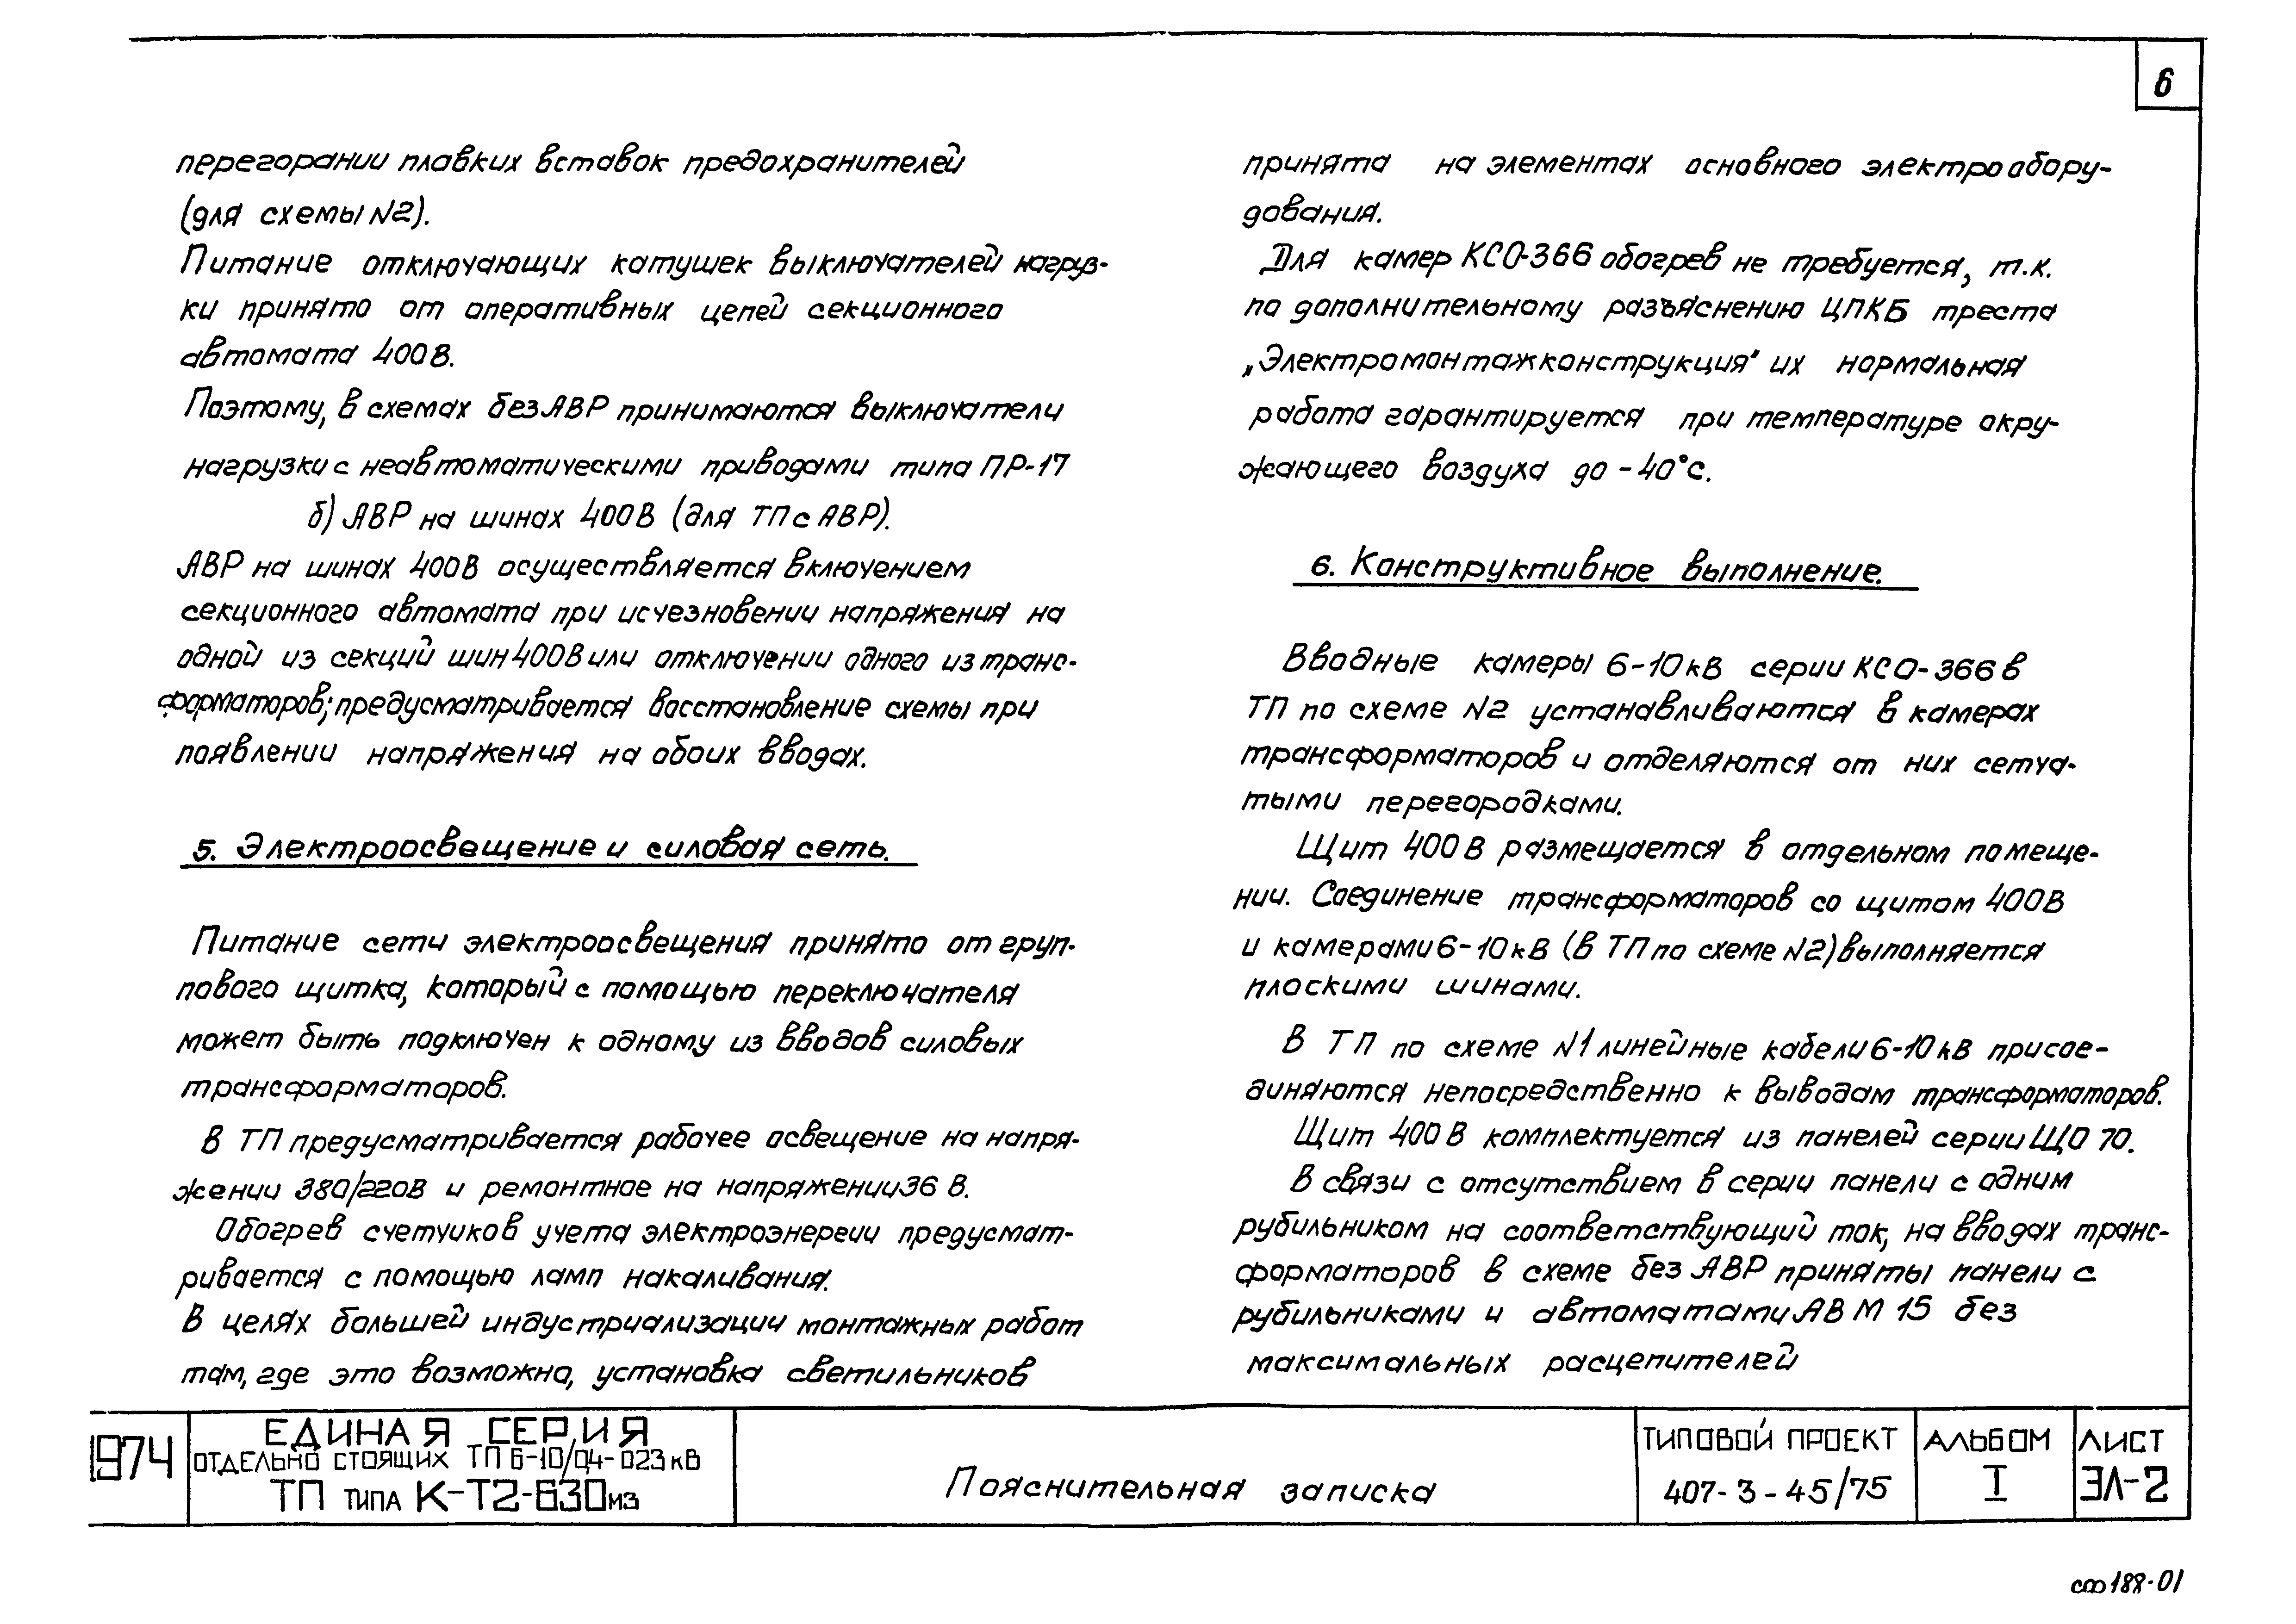 6
перегорании плавких вставок предохранителей
(для схемы N2).
Питание отключающих катушек выключателей нагруз-
ки принято от оперативных цепей секционного
автомата 400В.
Поэтому, в схемах без АВР принимаются выключатели
нагрузки с неавтоматическими приводами типа ПР-17
б) АВР на шинах 400В (для ТП с АВР).
АВР на шинах 400В осуществляется включением
секционного автомата при исчезновении напряжения на
одной из секций шин 400В или отключении одного из транс-
форматоров; предусматривается восстановление схемы при
появлении напряжения на обоих вводах.
5. Электроосвещение и силовая сеть.
Питание сети электроосвещения принято от груп-
пового щитка, который с помощью переключателя
может быть подключен к одному из вводов силовых
трансформаторов.
В ТП предусматривается рабочее освещение на напря-
жении 380/220В и ремонтное на напряжении 36 В.
Обогрев счетчиков учета электроэнергии предусмат-
ривается с помощью ламп накаливания.
В целях большей индустриализации монтажных работ
там, где это возможно, установка светильников
принята на элементах основного электрообору-
дования.
Для камер КСО-366 обогрев не требуется, т.к.
по дополнительному разъяснению ЦПКБ треста
„Электромонтажконструкция" их нормальная
работа гарантируется при температуре окру-
жающего воздуха до -40°с.
6. Конструктивное выполнение.
Вводные камеры 6-10кВ серии КСО-366 в
ТП по схеме N2 устанавливаются в камерах
трансформаторов и отделяются от них сетча-
тыми перегородками.
Щит 400В размещается в отдельном помеще-
нии. Соединение трансформаторов со щитом 400В
и камерами 6-10кВ (в ТП по схеме N2) выполняется
плоскими шинами.
В ТП по схеме N1 линейные кабели 6-10кВ присое-
диняются непосредственно к выводам трансформаторов.
Щит 400В комплектуется из панелей серии ЩО 70.
В связи с отсутствием в серии панели с одним
рубильником на соответствующий ток, на вводах транс-
форматоров в схеме без АВР приняты панели с
рубильниками и автоматами АВМ 15 без
максимальных расцепителей
1974
ЕДИНАЯ СЕРИЯ
ОТДЕЛЬНО СТОЯЩИХ ТП 6-10/0,4-023 кВ
ТП ТИПА К-Т2-630 м3
Пояснительная записка
ТИПОВОЙ ПРОЕКТ
407-3-45/75
АЛЬБОМ
I
ЛИСТ
ЭЛ-2
сф188-01